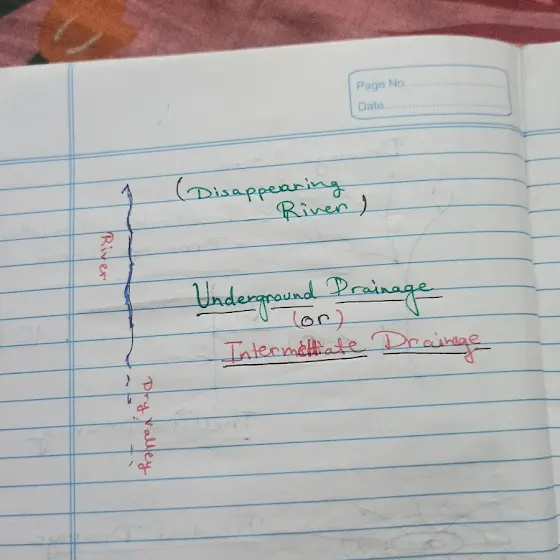 Page No.
Date
(Disappearing
River)
River
Underground Drainage
(or)
Drainage
Dry Valley